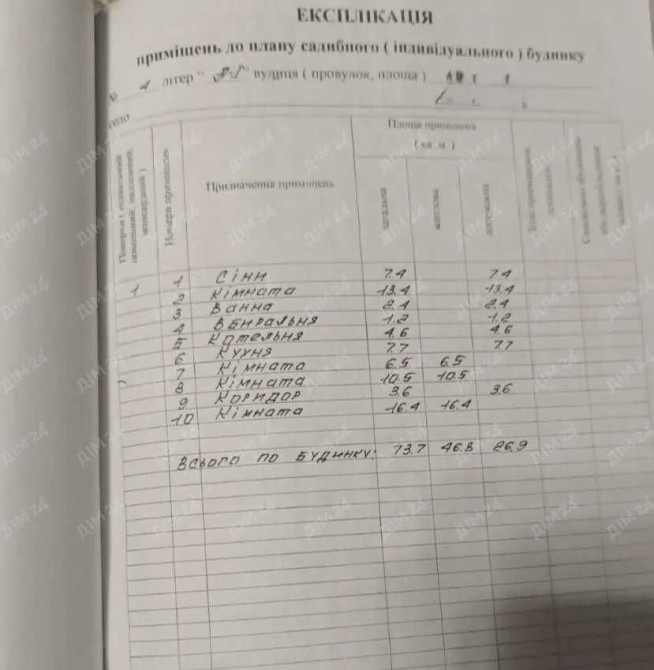 ЕКСПЛІКАЦІЯ
приміщень до плану садибного ( індивідуального ) будинку
№ 1 літер " " вулиця ( провулок, площа )
село
Поверхи ( підвальний цокольний, надземний, мансардний )
Номери приміщень
Призначення приміщень
Площа приміщень
( кв. м )
загальна
житлова
допоміжна
1 1 Сіни 7.4 7.4
2 Кімната 13.4 13.4
3 Ванна 2.4 2.4
4 Вбиральня 1.2 1.2
5 Котельня 4.6 4.6
6 Кухня 7.7 7.7
7 Кімната 6.5 6.5
8 Кімната 10.5 10.5
9 Коридор 3.6 3.6
10 Кімната 16.4 16.4
Всього по будинку: 73.7 46.8 26.9
ДІМ 24